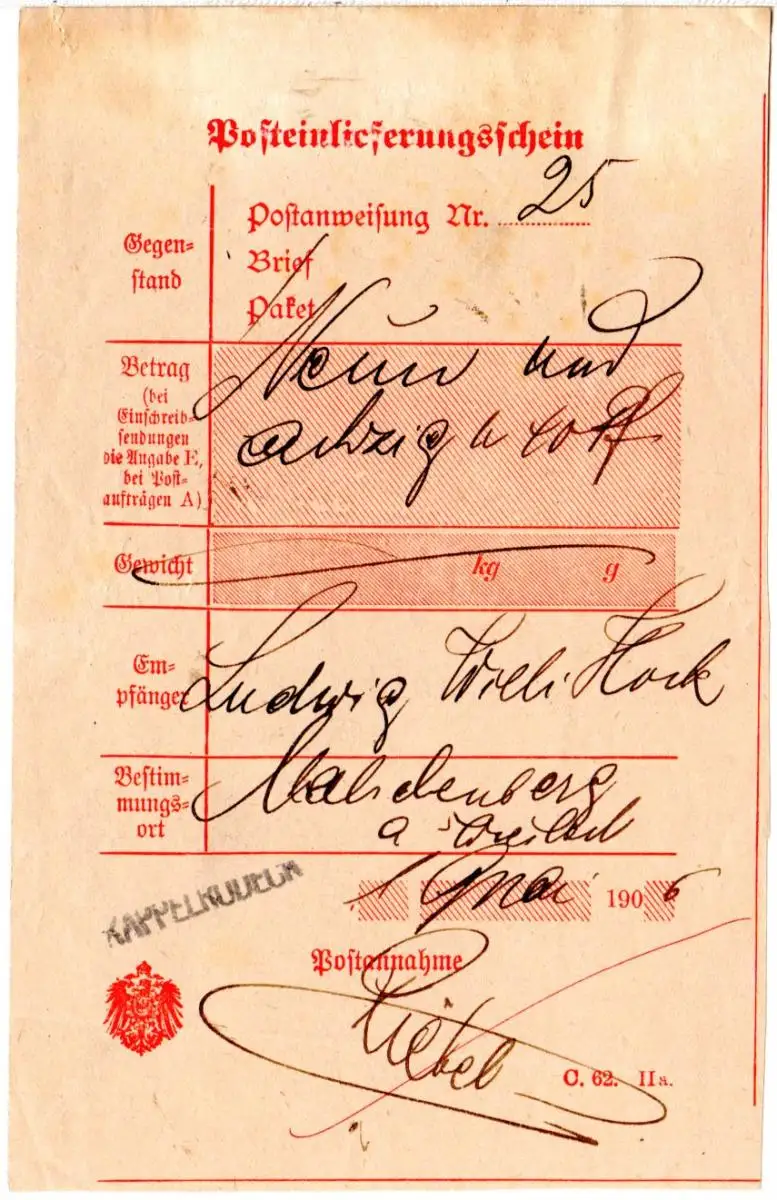 Posteinlieferungsschein
Gegen-
stand
Postanweisung Nr. 25
Brief
Paket
Betrag
(bei
Einschreib-
sendungen
die Angabe E,
bei Post-
aufträgen A)
Neun und
achzig M 40 Pf
Gewicht
kg g
Em-
pfänger
Ludwig Willi
Bestim-
mungs-
ort
a
KAPPELRODECK
1 Mai 1906
Postannahme
C. 62. IIa.